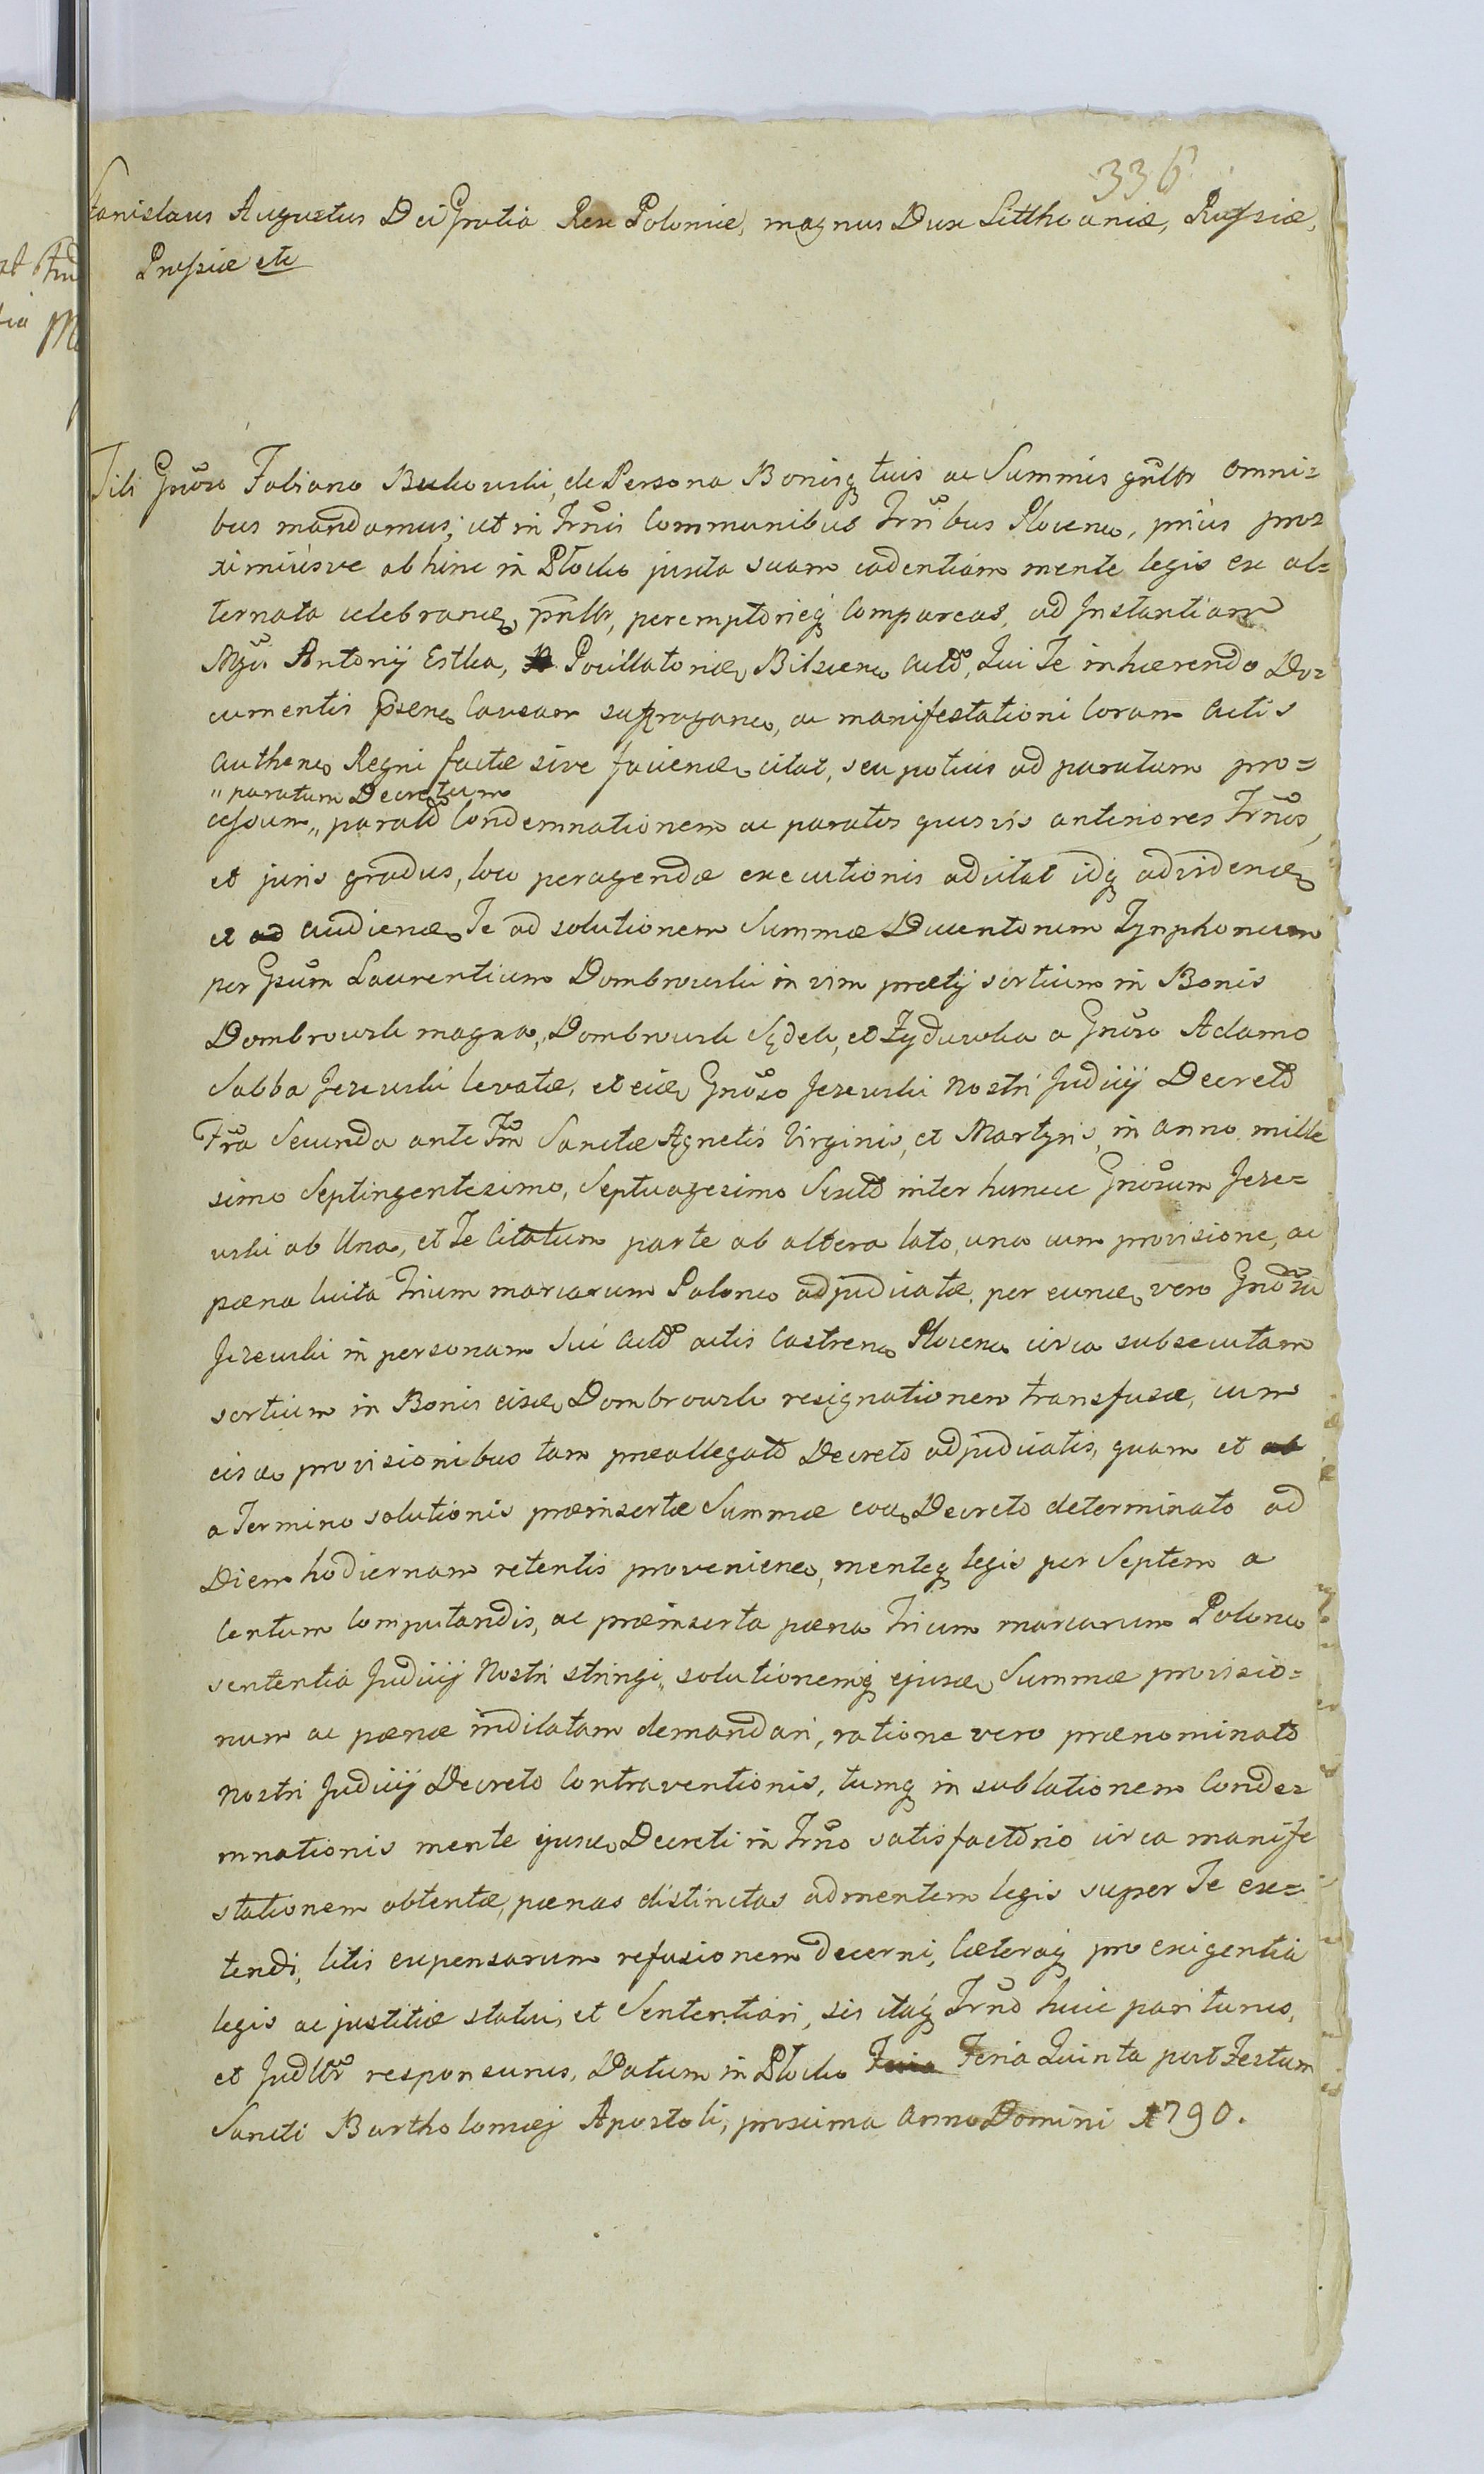 336
Stanislaus Augustus Dei Gratia Rex Poloniæ, magnus Dux Litthvaniæ, Russiæ,
Prussiæ etc
Tibi Gnoso Fabiano Bukowski, de Persona Bonisq tuis ac Summis gnltr omni=
bus mandamus, ut in Trnis Communibus Trribus Plocen, prius pro=
ximiusve abhinc in Płocko juxta suam cadentiam mente legis ex al=
ternata celebran, pnltr, peremptorieq Compareas, ad Instantiam
Mgci Antonij Estka, Pocillatoris Bilscen Actor, Qui Te inhærendo Do=
cumentis psen Causam suffragan, ac manifestationi Coram Actis
Authen Regni factæ sive facien citat, seu potius ad paratum pro=
"paratum Decretum
cessum,, parata Condemnationem ac paratos quosvis anteriores Trnos,
et juris gradus, loco peragendæ executionis adcitat idq ad viden
et ad audien Te ad solutionem Summæ Ducentorum Tynphonum
per Gsum Laurentium Dombrowski in vim pretij sortium in Bonis
Dombrowsk magna, Dombrowsk Sędek, et Zydowka a Gnoso Adamo
Sabba Jezewski levatæ, et eid Gnoso Jezewski Nostri Judicij Decreto
Fria Secunda ante Fm Sanctæ Agnetis Virginis, et Martyris, in anno mille
simo Septingentesimo, Septuagesimo Sexto inter hunc Gnosum Jeze=
wski ab Una, et Te Citatum parte ab altera lato, una cum provisione, ac
pæna luita Trium marcarum Polon adjudicatæ, per eund vero Gnosu
Jezewski in personam Sui Actor actis Castren Plocen circa subsecutam
sortium in Bonis eisd Dombrowsk resignationem transfusæ, cum
eisd provisionibus tam præallegato Decreto adjudicatis, quam et ab
a Termino solutionis præinsertæ Summæ eod Decreto determinato ad
Diem hodiernam retentis provenien, menteq legis per Septem a
Centum Computandis, ac præinserta pæna Trium marcarum Polon
sententia Judicij Nostri stringi, solutionemq ejusd Summæ provisio=
num ac pænæ indilatam demandari, ratione vero prænominato
Nostri Judicij Decreto Contraventionis, tumq in sublationem Conde=
mnationis mente ejusd Decreti in Trno satisfactorio circa manife
stationem obtentæ, pænas distinctas ad mentem legis super Te ex=
tendi, litis expensarum refusionem decerni, Cæteraq pro exigentia
legis ac justitiæ statui, et Sententiari, sis itaq Trno huic pariturus,
et Judltr responsurus, Datum in Płocko Feria Feria Quinta post Festum
Sancti Bartholomæj Apostoli, proxima Anno Domini 1790.